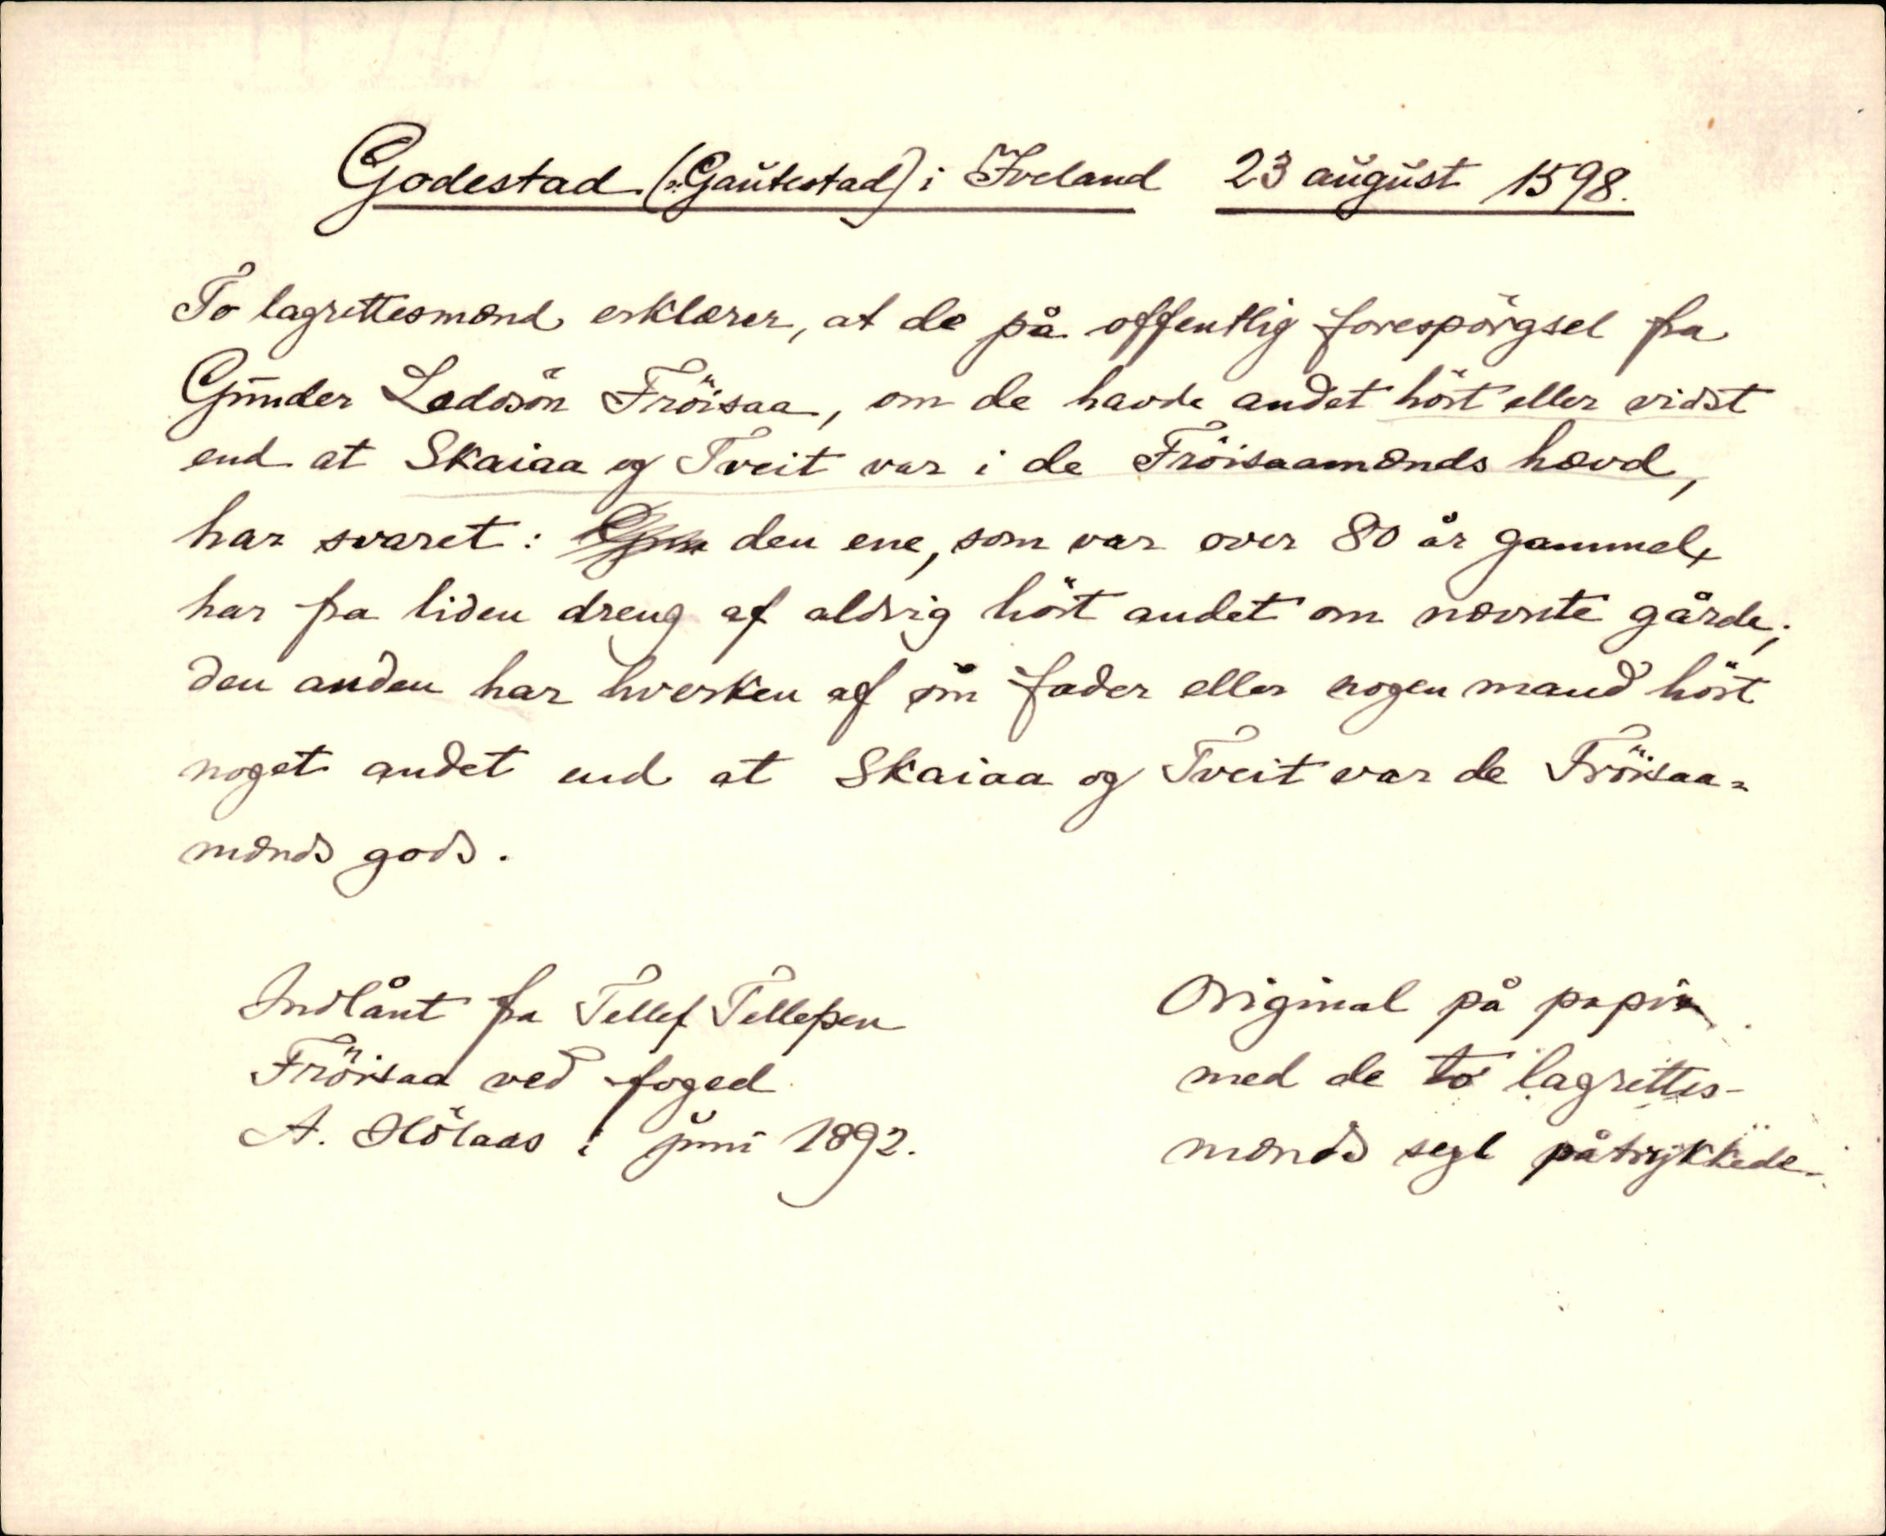 Godestad (: Gautestad) i Iveland 23 august 1598.
To lagrettesmænd erklærer, at de på offentlig forespörgsel fra
Gunder Ledosön Fröisaa, om de havde andet hört eller vidst
end at Skaiaa og Tveit var i de Fröisaamænds hævd,
har svaret: den ene, som var over 80 år gammel,
har fra liden dreng af aldrig hört andet om nævnte gårde;
den anden har hverken af sin fader eller nogen mand hört
noget andet end at Skaiaa og Tveit var de Fröisaa=
mænds gods.
Indlånt fra Tellef Tellefsen
Fröisaa ved foged
A. Hölaas i juni 1892.
Original på papir
med de to lagrettes-
mænds segl påtrykkede.